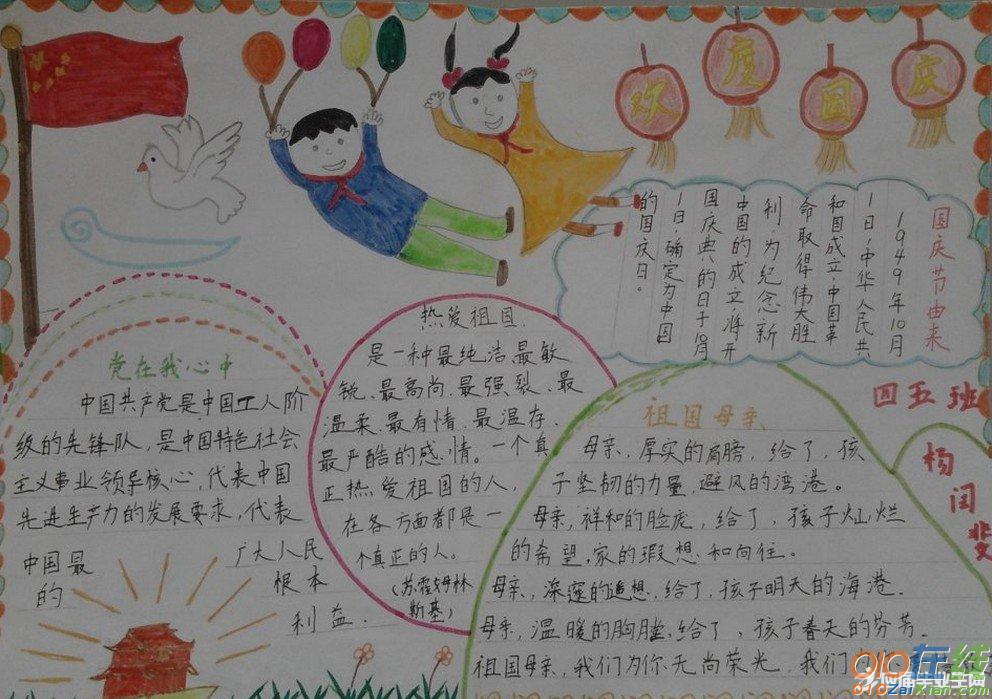 欢度国庆
国庆节由来
1949年10月
1日，中华人民共
和国成立，中国革
命取得伟大胜
利，为纪念新
中国的成立，将开
国庆典的日子10月
1日，确定为中国
的国庆日。
四五班
杨闰斐
党在我心中
中国共产党是中国工人阶
级的先锋队，是中国特色社会
主义事业领导核心，代表中国
先进生产力的发展要求，代表
中国最 广大人民
的 根本
利益.
热爱祖国.
是一种最纯洁、最敏
锐、最高尚、最强裂、最
温柔、最有情、最温存、
最严酷的感情。一个真
正热爱祖国的人，
在各方面都是一
个真正的人。
(苏霍姆林
斯基)
祖国母亲
母亲，厚实的肩膀，给了，孩
子坚韧的力量，避风的湾港。
母亲，祥和的脸庞，给了，孩子灿烂
的希望，家的瑕想，和向往。
母亲，深邃的追想，给了，孩子明天的海港.
母亲，温暖的胸膛，给了，孩子春天的芬芳.
祖国母亲，我们为你无尚荣光，我们为
910在线
zaixian.com